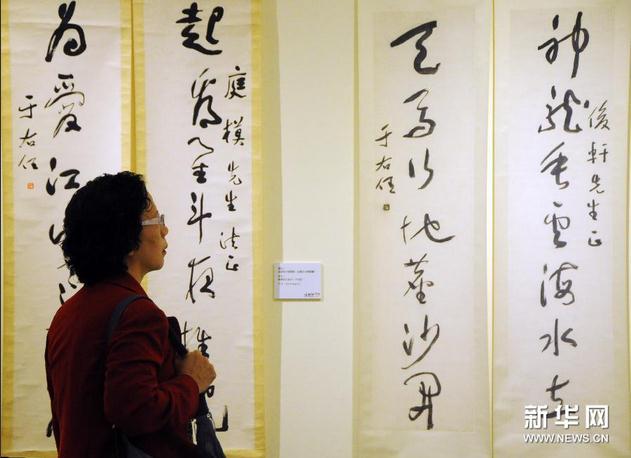 神龍垂雲海水立
俊軒先生正
天馬行地塵沙開
于右任
起看星斗夜推
庭模先生法正
為愛江山
于右任
新华网
WWW.NEWS.CN